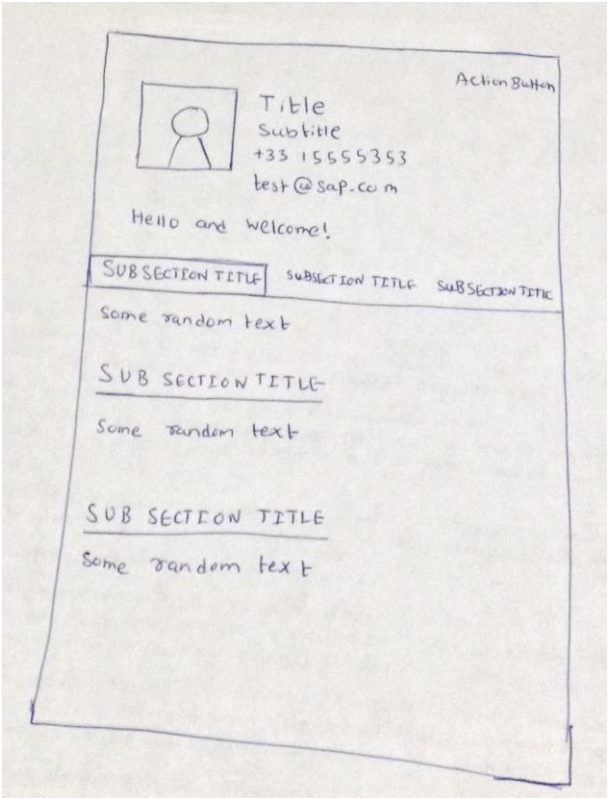 Action Button
Title
Subtitle
+33 15555353
test@sap.com
Hello and Welcome!
SUBSECTION TITLE SUBSECTION TITLE SUBSECTION TITLE
Some random text
SUB SECTION TITLE
Some random text
SUB SECTION TITLE
Some random text